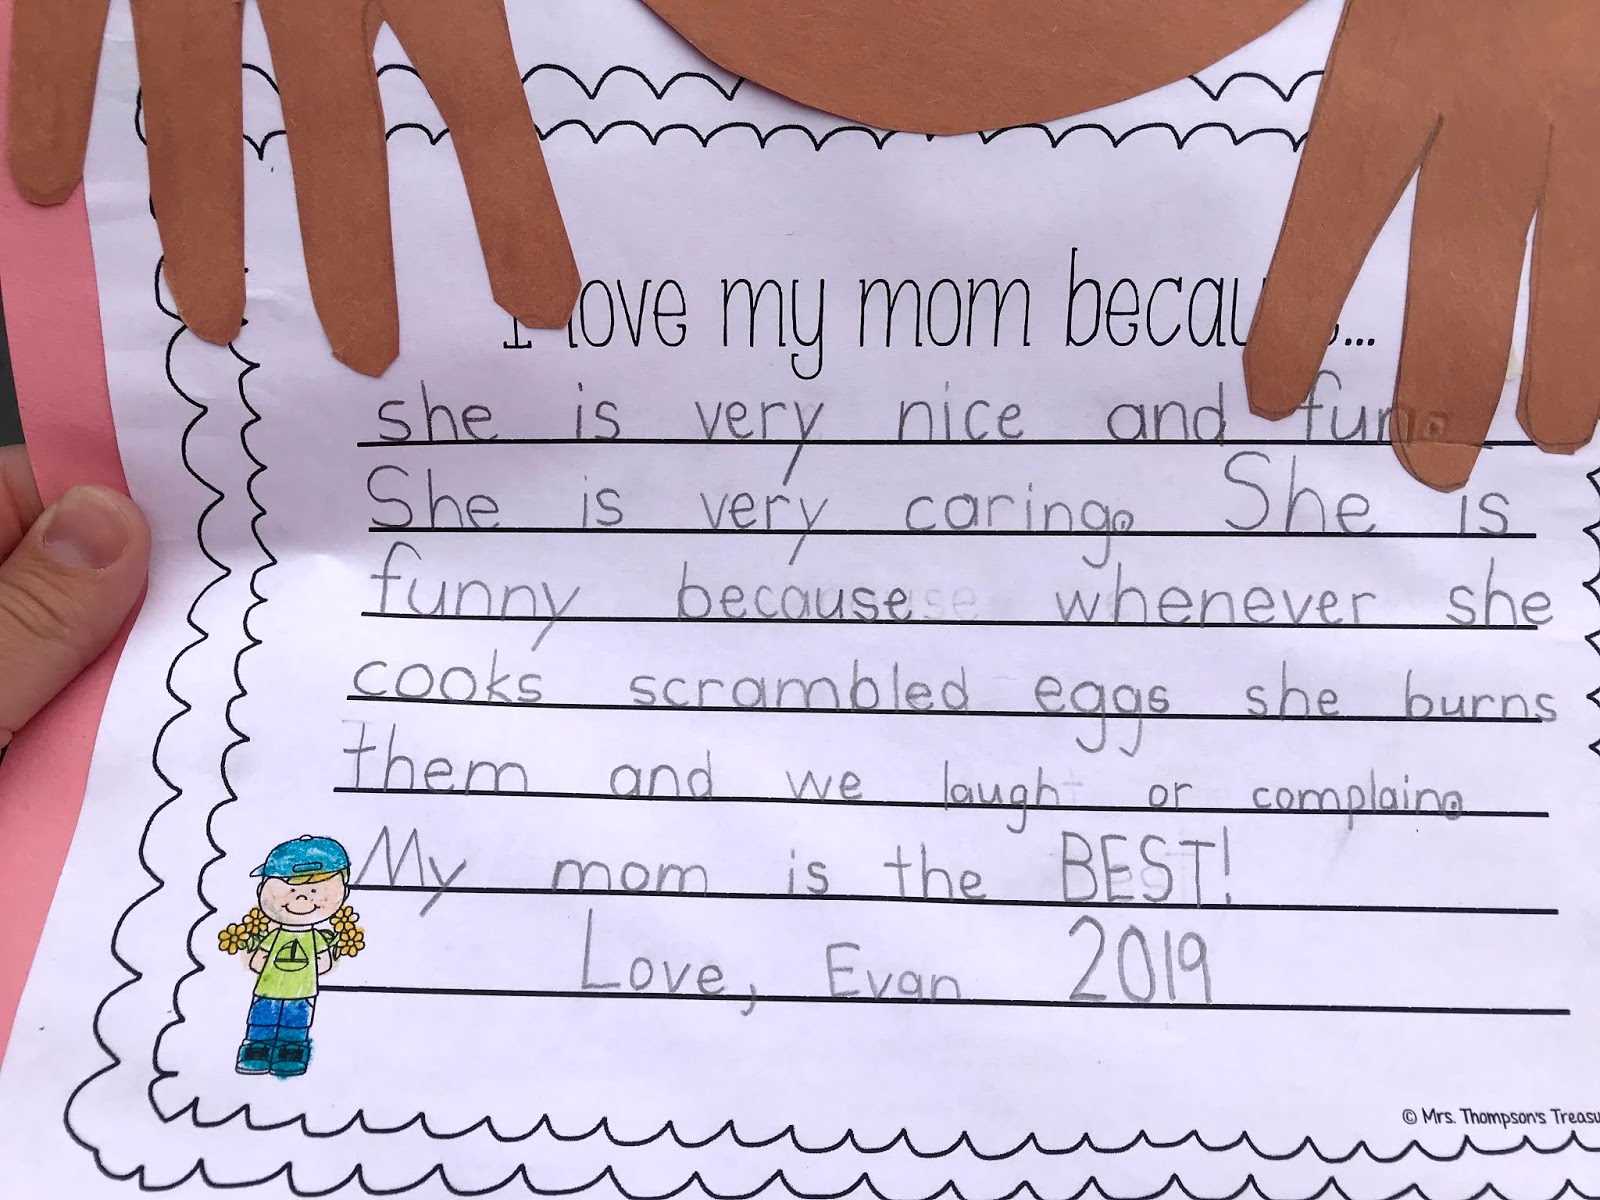 I love my mom because...
she is very nice and fun.
She is very caring. She is
funny because whenever she
cooks scrambled eggs she burns
them and we laugh or complain.
My mom is the BEST!
Love, Evan 2019
© Mrs. Thompson's Treasu